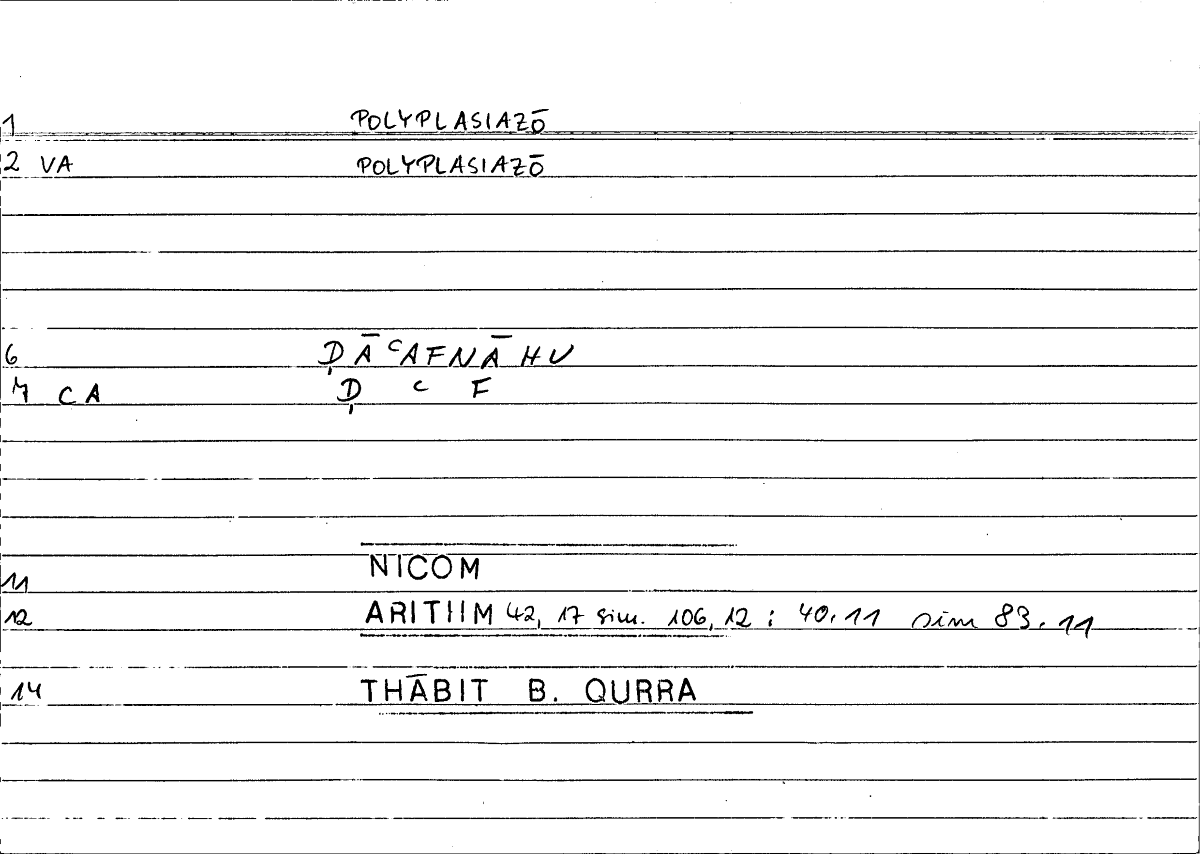 1 POLYPLASIAZŌ
2 VA POLYPLASIAZŌ
6 ḌĀʿAFNĀHU
7 CA Ḍ ʿ F
11 NICOM
12 ARITHM 42, 17 sim. 106, 12 : 40.11 sim 83.11
14 THĀBIT B. QURRA